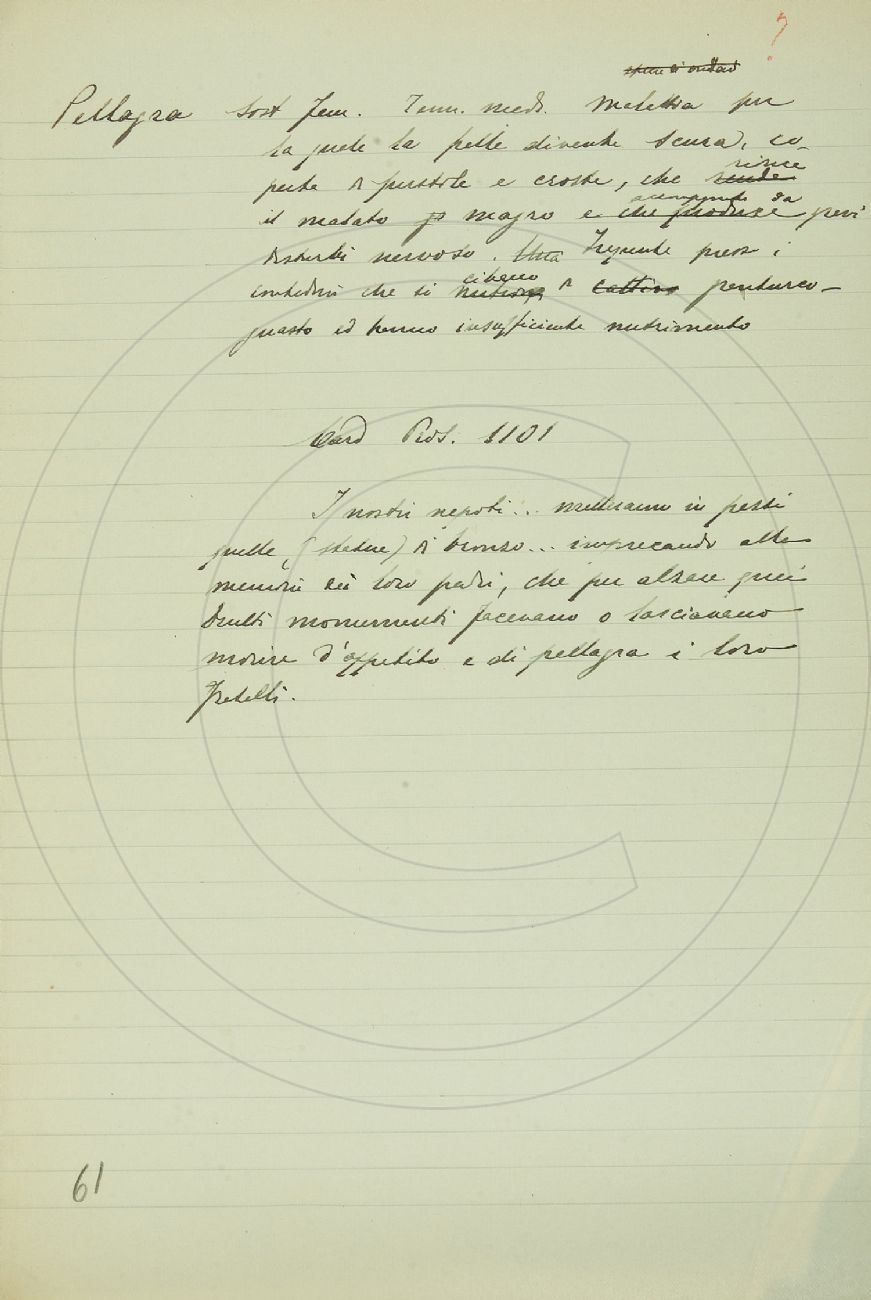 ?
Pellagra Sost fem. Term. medi. Malattia per
la quale la pelle diventa scura, co-
perta di pustole e croste, che rende
riesce
il malato magro e che produce gravi
accompagnato da
disturbi nervosi. Una Frequente presso i
contadini che si nutrono di cattivo granturco
cibano
guasto ed hanno insufficiente nutrimento
Card Pros. 1101
I nostri nepoti... metteranno in pezzi
quelle (statue) di bronzo... imprecando alla
memoria dei loro padri, che per alzare quei
brutti monumenti facevano o lasciavano
morire d'appetito e di pellagra i loro
fratelli.
61